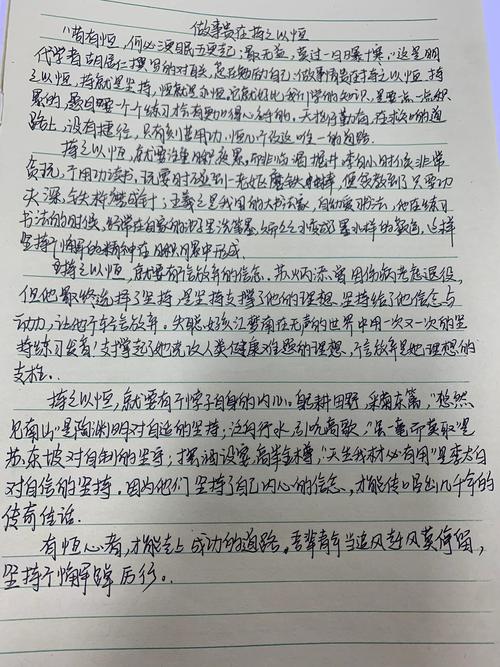 做事贵在持之以恒
"苟有恒,何必三更眠五更起;最无益,莫过一日曝十寒。"这是明
代学者胡居仁撰写的对联,意在勉励自己:做事情贵在持之以恒。持
之以恒,持就是坚持,恒就是永恒,它就好比我们学的知识,是要一点一点积
累的,是日复一个个练习才会有助以得心应手的。天地行勤奋,在求知的道
路上,没有捷径,只有刻苦用功,恒心个设这唯一的道路。
持之以恒,就要注重日积月累,而非临渴掘井。李白小时候非常
贪玩,不用功读书,玩耍时碰到一老妪磨铁杵,便领教到了只要功
夫深,铁杵磨成针;王羲之是我国的大书法家,自幼爱习书法,他在练习
书法的时候,经常在自家的池里洗笔墨,以至池水变成墨水样的颜色,这样
坚持不懈的精神在日积月累中形成。
持之以恒,就要有不言放弃的信念。苏炳添曾因伤病考虑退役,
但他最终选择了坚持,是坚持支撑了他的理想,坚持给了他信念与
动力,让他不轻言放弃。失聪女孩江梦南在无声的世界中用一次又一次的坚
持练习发音,支撑起了她克服人类健康难题的理想,不言放弃是她理想的
支柱。
持之以恒,就要有不悖于自身的内心。躬耕田野,采菊东篱,"悠然
见南山"是陶渊明对自适的坚持;泛舟行水,引吭高歌,"虽一毫而莫取"是
苏东坡对自制的坚守;摆酒设宴,高举金樽,"天生我材必有用"是李太白
对自信的坚持。因为他们坚持了自己内心的信念,才能传唱出几千年的
传奇佳话。
有恒心者,才能走上成功的道路。吾辈青年当追风赶月莫停留,
坚持不懈踔厉行。